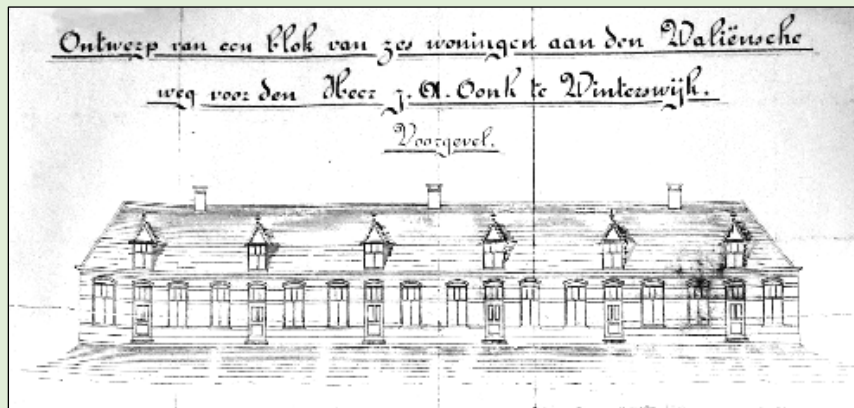 Ontwerp van een blok van zes woningen aan den Waliënsche
weg voor den Heer J. A. Oonk te Winterswijk.
Voorgevel.